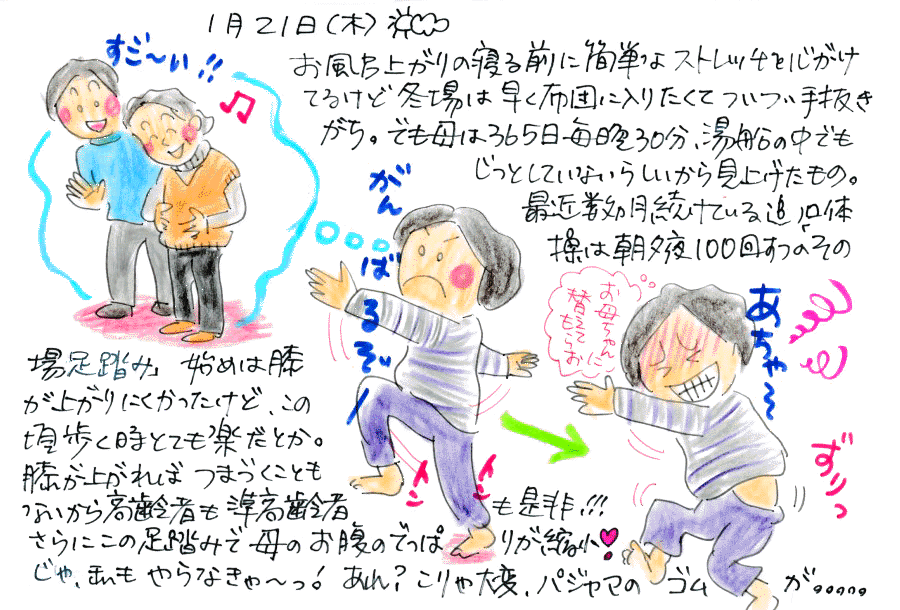 1月21日(木)
すご〜い!!
お風呂上がりの寝る前に簡単なストレッチを心がけ
てるけど冬場は早く布団に入りたくてついつい手抜き
がち。でも母は365日毎晩30分、湯船の中でも
じっとしていないらしいから見上げたもの。
最近数カ月続けている追加体
操は朝夕夜100回ずつの「その
場足踏み」始めは膝
が上がりにくかったけど、この
頃歩く時とても楽だとか。
膝が上がれば つまづくことも
ないから高齢者も準高齢者
も是非!!!
さらにこの足踏みで母のお腹のでっぱりが縮小
じゃ、私も やらなきゃ〜っ! あれ? こりゃ大変、パジャマの ゴムが。。。。。
がんばるぞ〜!
イシ
イシ
お母ちゃんに
替えてもらお
あちゃ〜
ずりっ